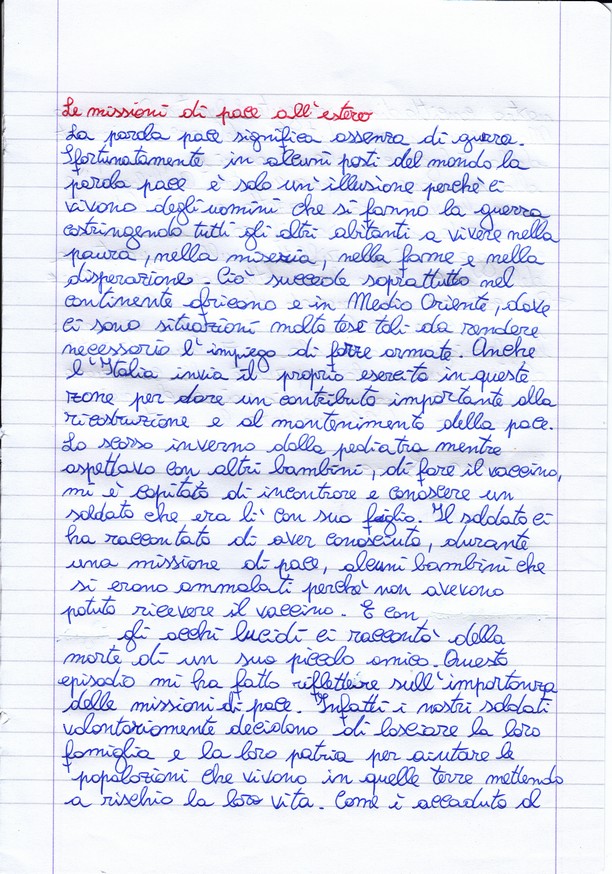 Le missioni di pace all'estero
La parola pace significa assenza di guerra.
Sfortunatamente in alcuni posti del mondo la
parola pace è solo un'illusione perchè ci
vivono degli uomini che si fanno la guerra
costringendo tutti gli altri abitanti a vivere nella
paura, nella miseria, nella fame e nella
disperazione. Ciò succede soprattutto nel
continente africano e in Medio Oriente, dove
ci sono situazioni molto tese tali da rendere
necessario l'impiego di forze armate. Anche
l'Italia invia il proprio esercito in queste
zone per dare un contributo importante alla
ricostruzione e al mantenimento della pace.
Lo scorso inverno dalla pediatra mentre
aspettavo con altri bambini, di fare il vaccino,
mi è capitato di incontrare e conoscere un
soldato che era lì con suo figlio. Il soldato ci
ha raccontato di aver conosciuto, durante
una missione di pace, alcuni bambini che
si erano ammalati perchè non avevano
potuto ricevere il vaccino. E con
gli occhi lucidi ci raccontò della
morte di un suo piccolo amico. Questo
episodio mi ha fatto riflettere sull'importanza
delle missioni di pace. Infatti i nostri soldati
volontariamente decidono di lasciare la loro
famiglia e la loro patria per aiutare le
popolazioni che vivono in quelle terre mettendo
a rischio la loro vita. Come è accaduto al